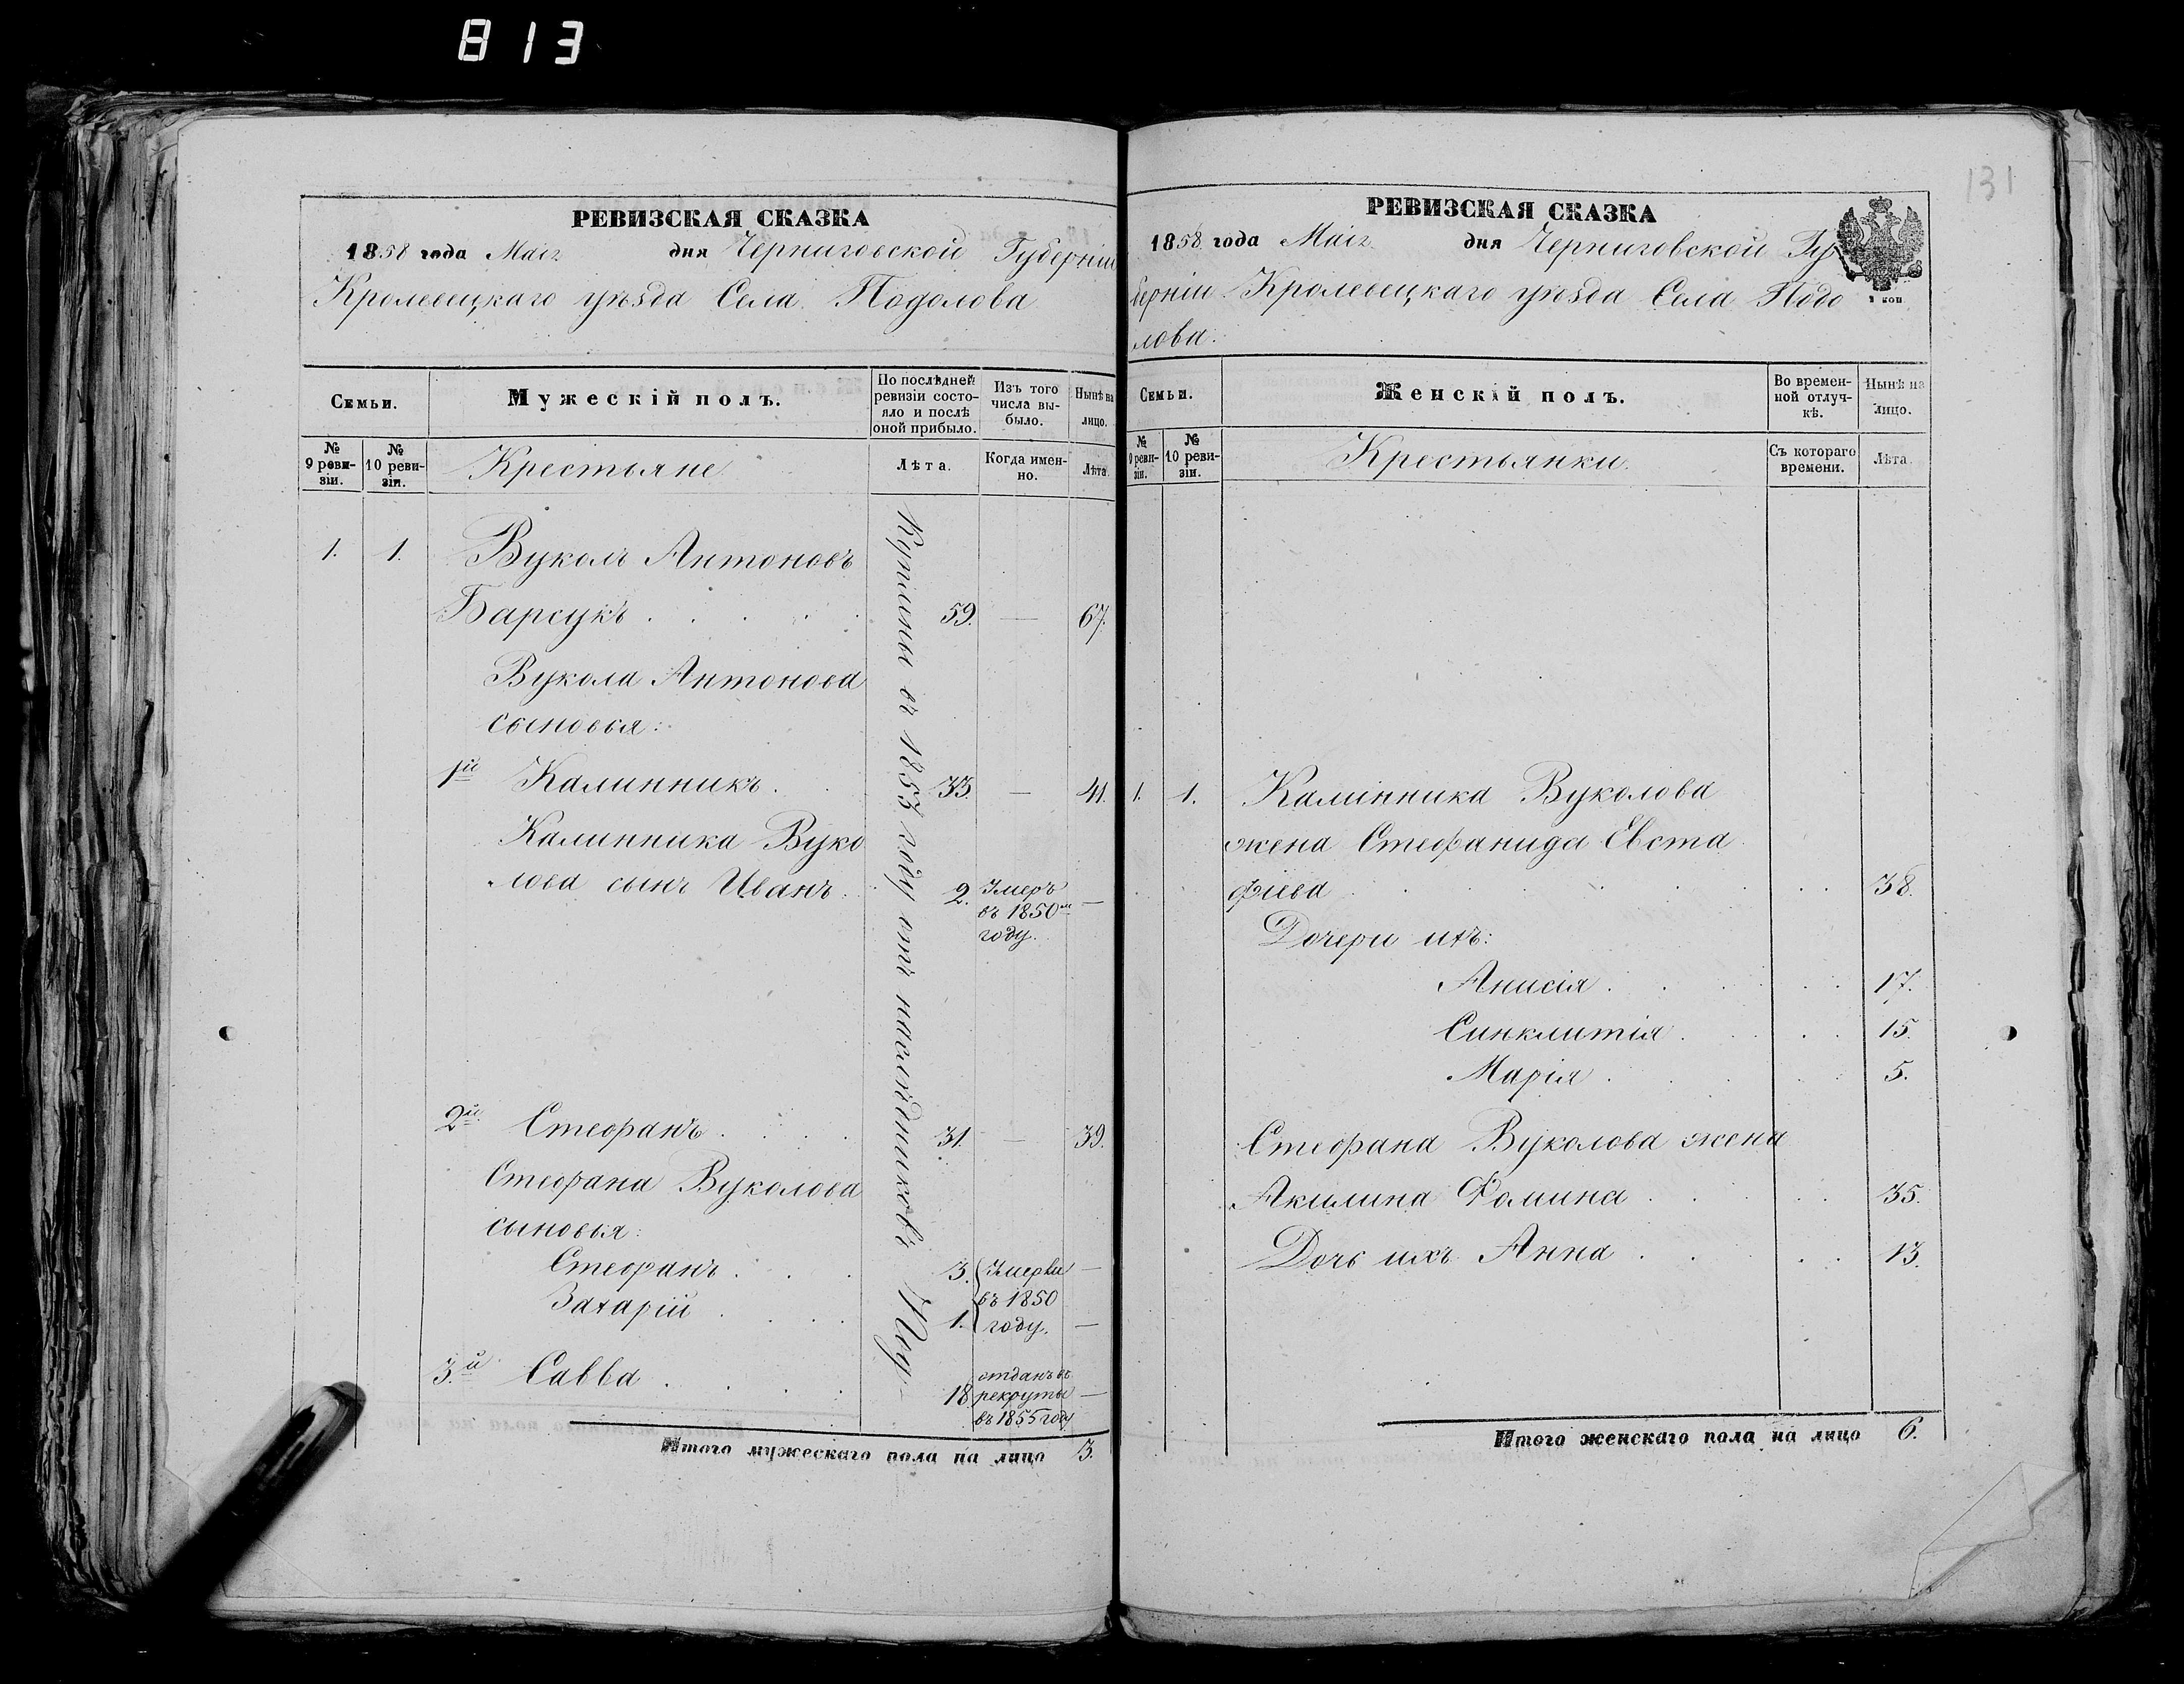 813
131
РЕВИЗСКАЯ СКАЗКА
1858 года Маія дня Черниговской Губерніи
Кролевецкаго уѣзда Села Подолова
Семьи.
Мужескій полъ.
По послѣдней ревизіи состояло и послѣ оной прибыло.
Изъ того числа выбыло.
Нынѣ на лицо.
№ 9 ревизіи.
№ 10 ревизіи.
Крестьяне
Лѣта.
Когда именно.
Лѣта.
1. 1. Вуколъ Антоновъ
Барсукъ 59. — 67.
Вукола Антонова
сыновья:
1й Калинникъ 33. — 41.
Калинника Вуко
лова сынъ Иванъ 2. Умеръ въ 1850м году. —
2й Стефанъ 31. — 39.
Стефана Вуколова
сыновья:
Стефанъ 3. Умерли —
въ 1850
Захарій 1. году. —
3й Савва 18 отданъ въ рекруты въ 1855 году —
Куплены въ 1853 году отъ наслѣдниковъ
Итого мужескаго пола на лицо 3.
РЕВИЗСКАЯ СКАЗКА
1858 года Маія дня Черниговской Гу
берніи Кролевецкаго уѣзда Села Подо
лова.
2 коп
Семьи.
Женскій полъ.
Во временной отлучкѣ.
Нынѣ на лицо.
№ 9 ревизіи.
№ 10 ревизіи.
Крестьянки.
Съ котораго времени.
Лѣта.
1. 1. Калинника Вуколова
жена Стефанида Евста
фіева 38.
Дочери ихъ:
Анисія 17.
Синклитія 15.
Марія 5.
Стефана Вуколова жена
Акилина Фомина 35.
Дочь ихъ Анна 13.
Итого женскаго пола на лицо 6.